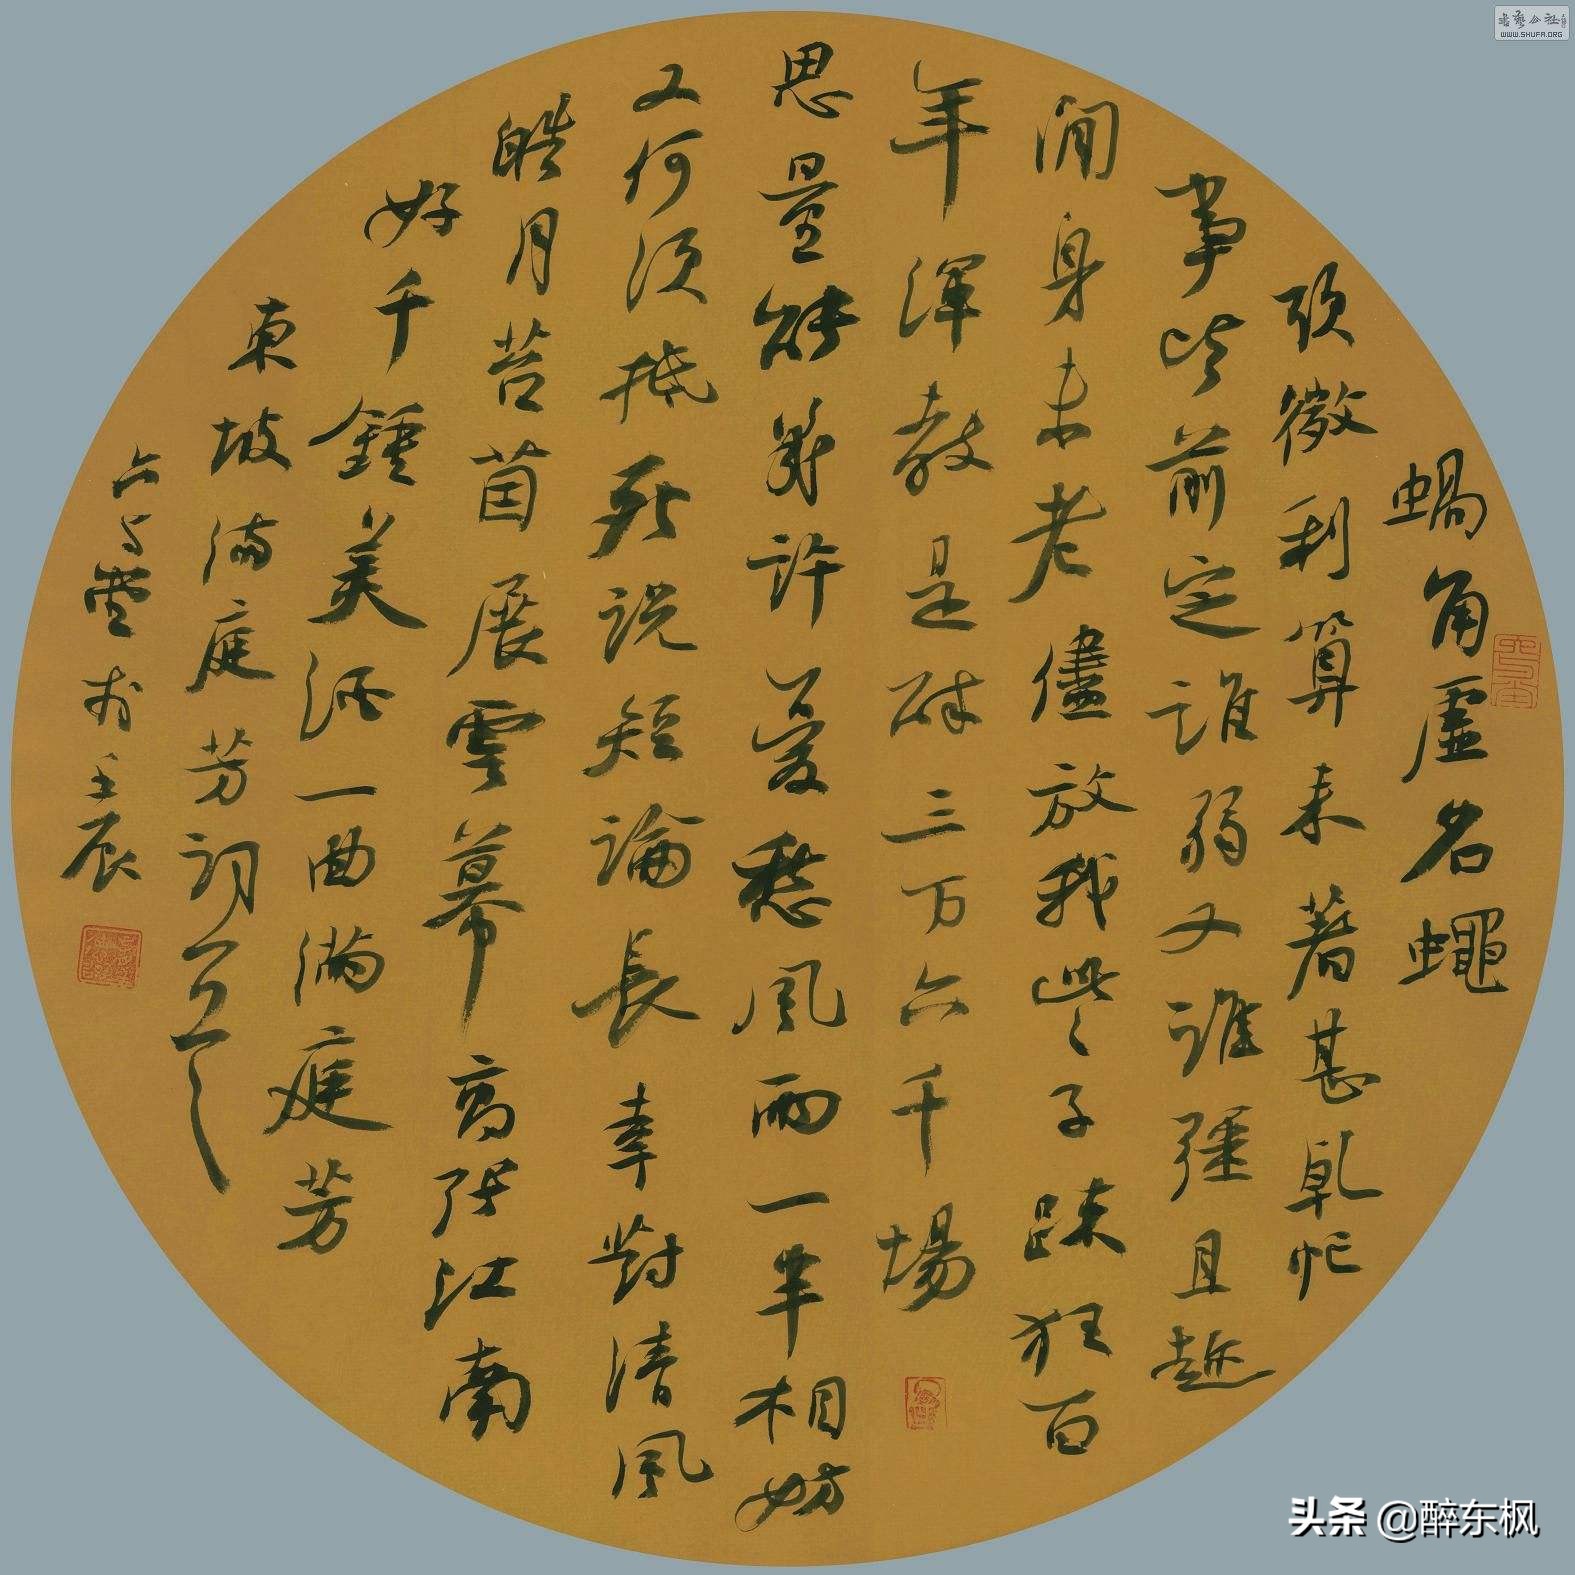 蝸角虛名蠅
頭微利算来著甚乾忙
事皆前定誰弱又誰彊且趂
閒身未老儘放我些子疎狂百
年渾教是醉三万六千場
思量能筭許憂愁風雨一半相妨
又何須抵死說短論長幸對清風
皓月苔茵展雲幕高張江南
好千鍾美酒一曲滿庭芳
東坡滿庭芳詞一
壬辰
WWW.SHUFA.ORG
头条 @醉东枫